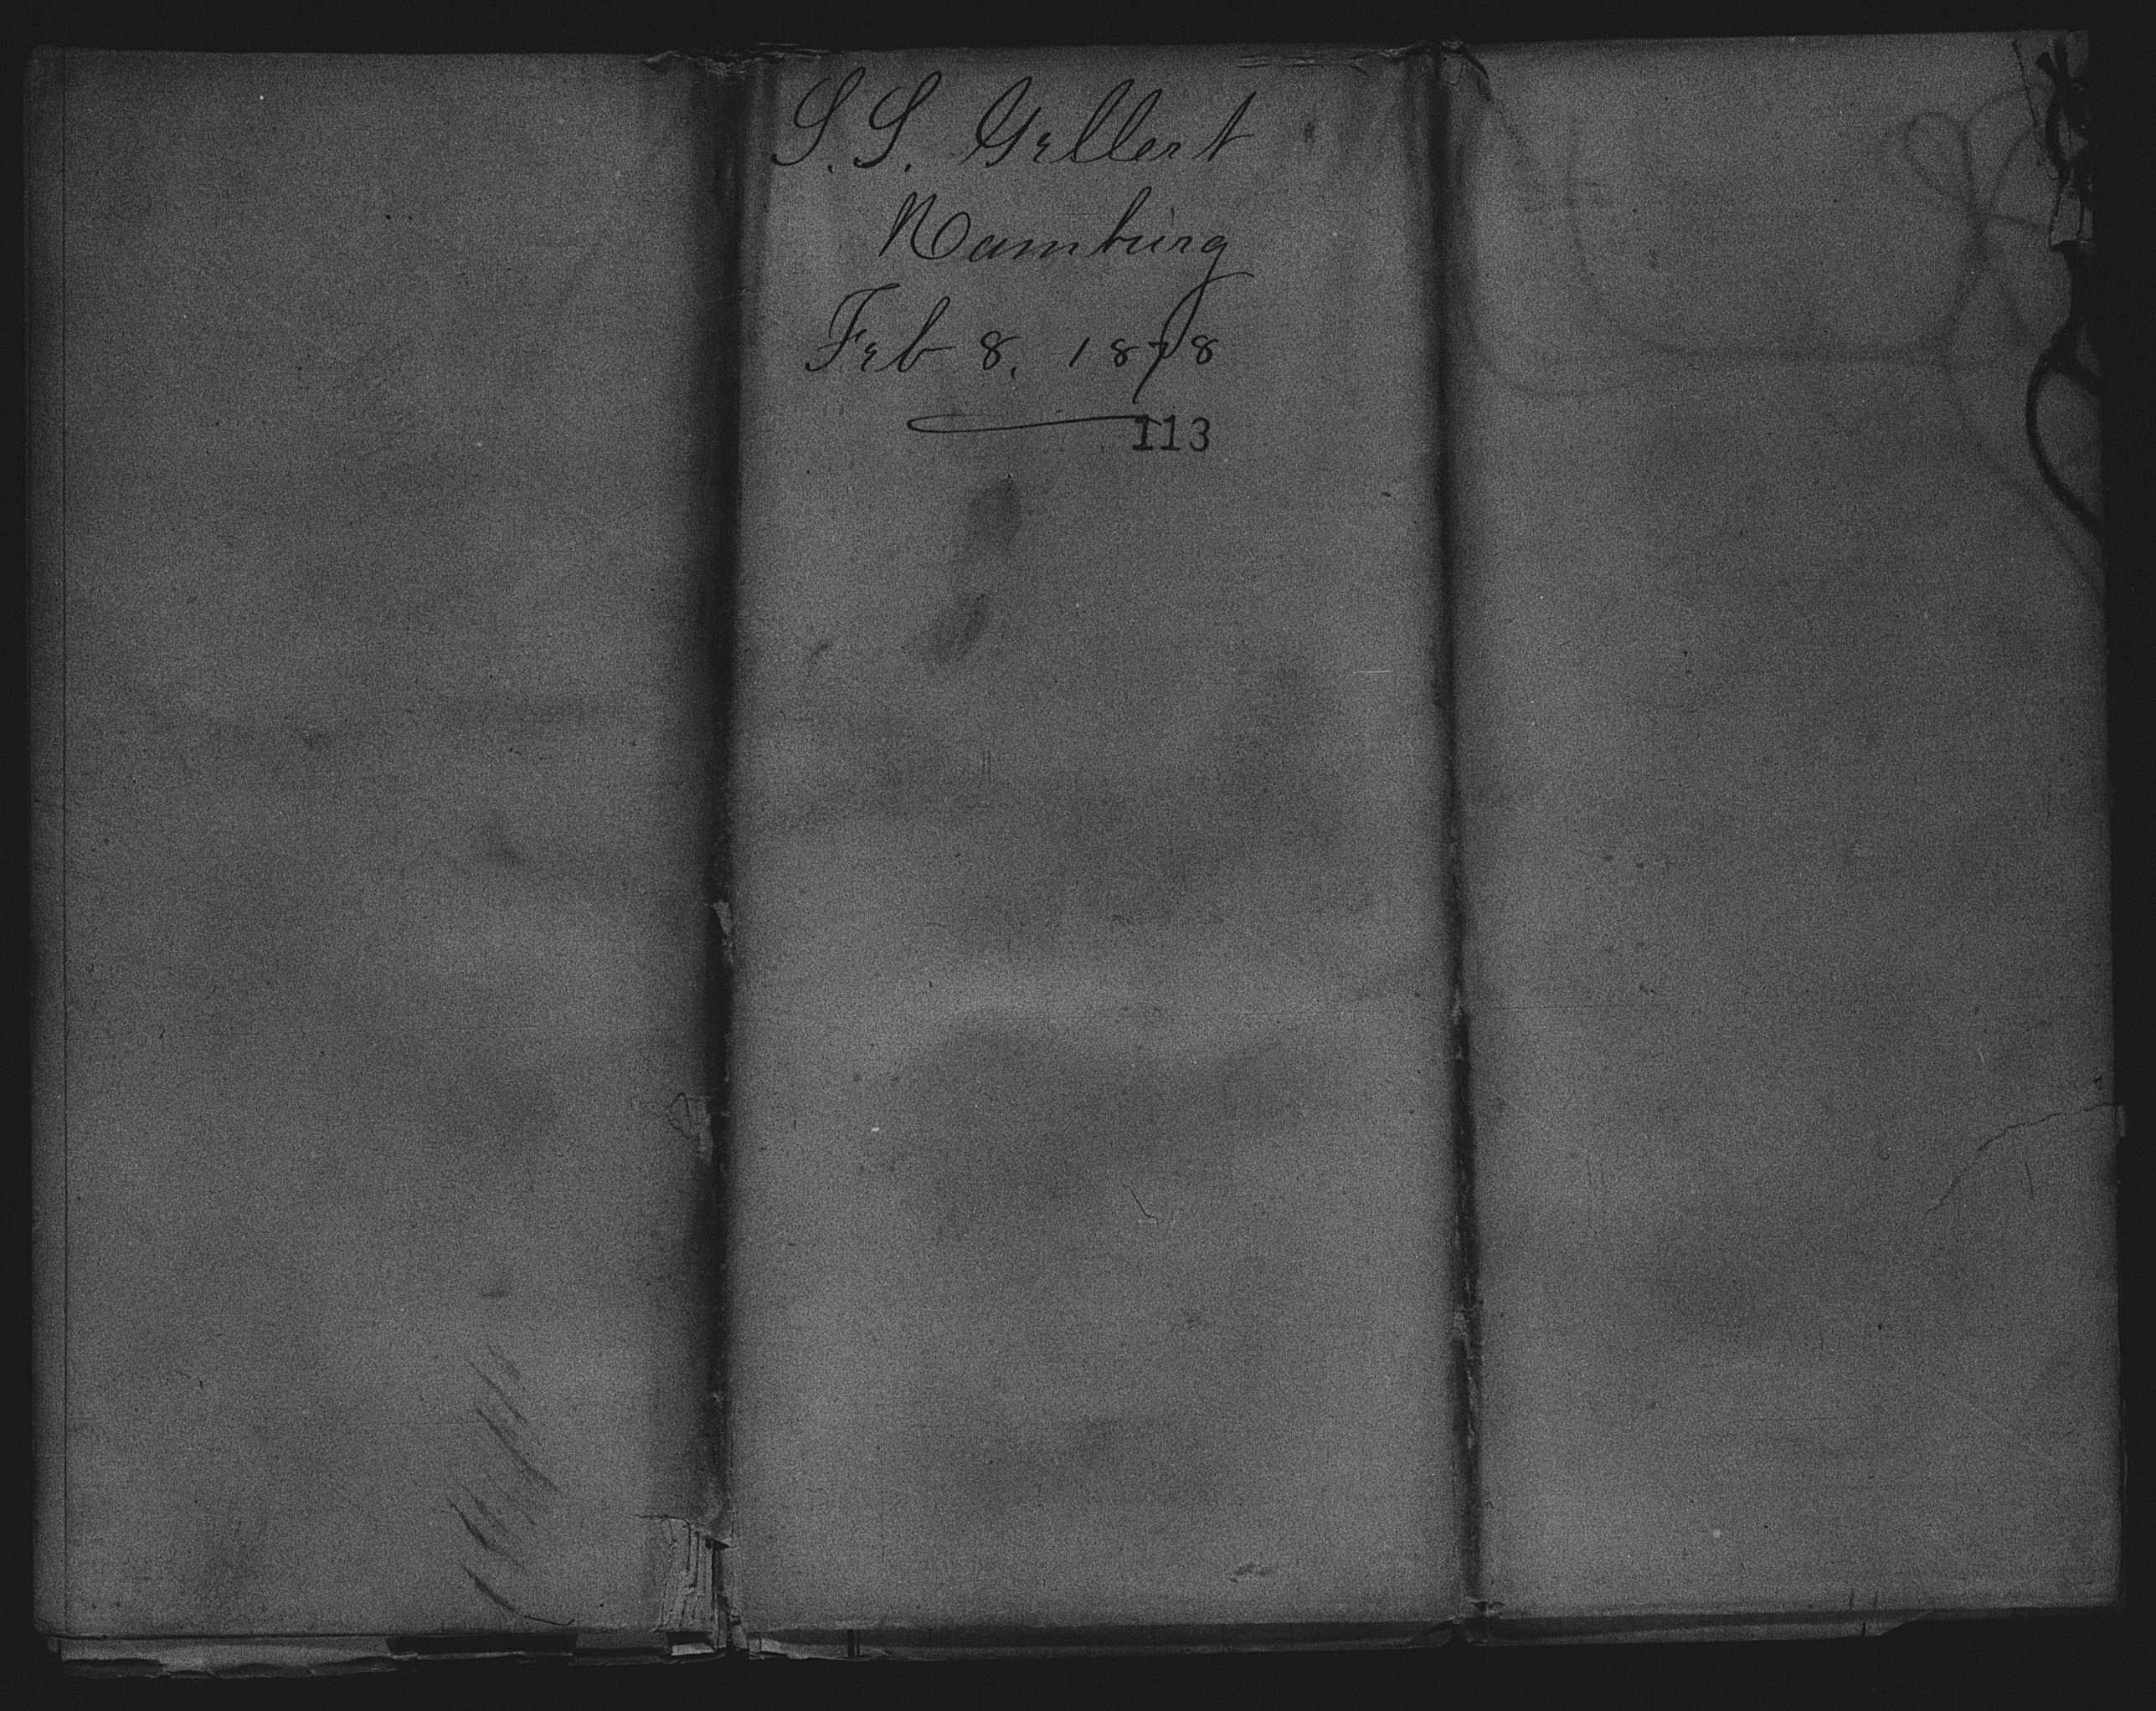 S.S. Gellert
Hamburg
Feb 8, 1878
113